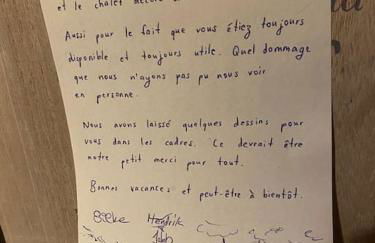 et le chalet
Aussi pour le fait que vous étiez toujours
disponible et toujours utile. Quel dommage
que nous n'ayons pas pu nous voir
en personne.
Nous avons laissé quelques dessins pour
vous dans les cadres. Ce devrait être
notre petit merci pour tout.
Bonnes vacances et peut-être à bientôt.
Hendrik